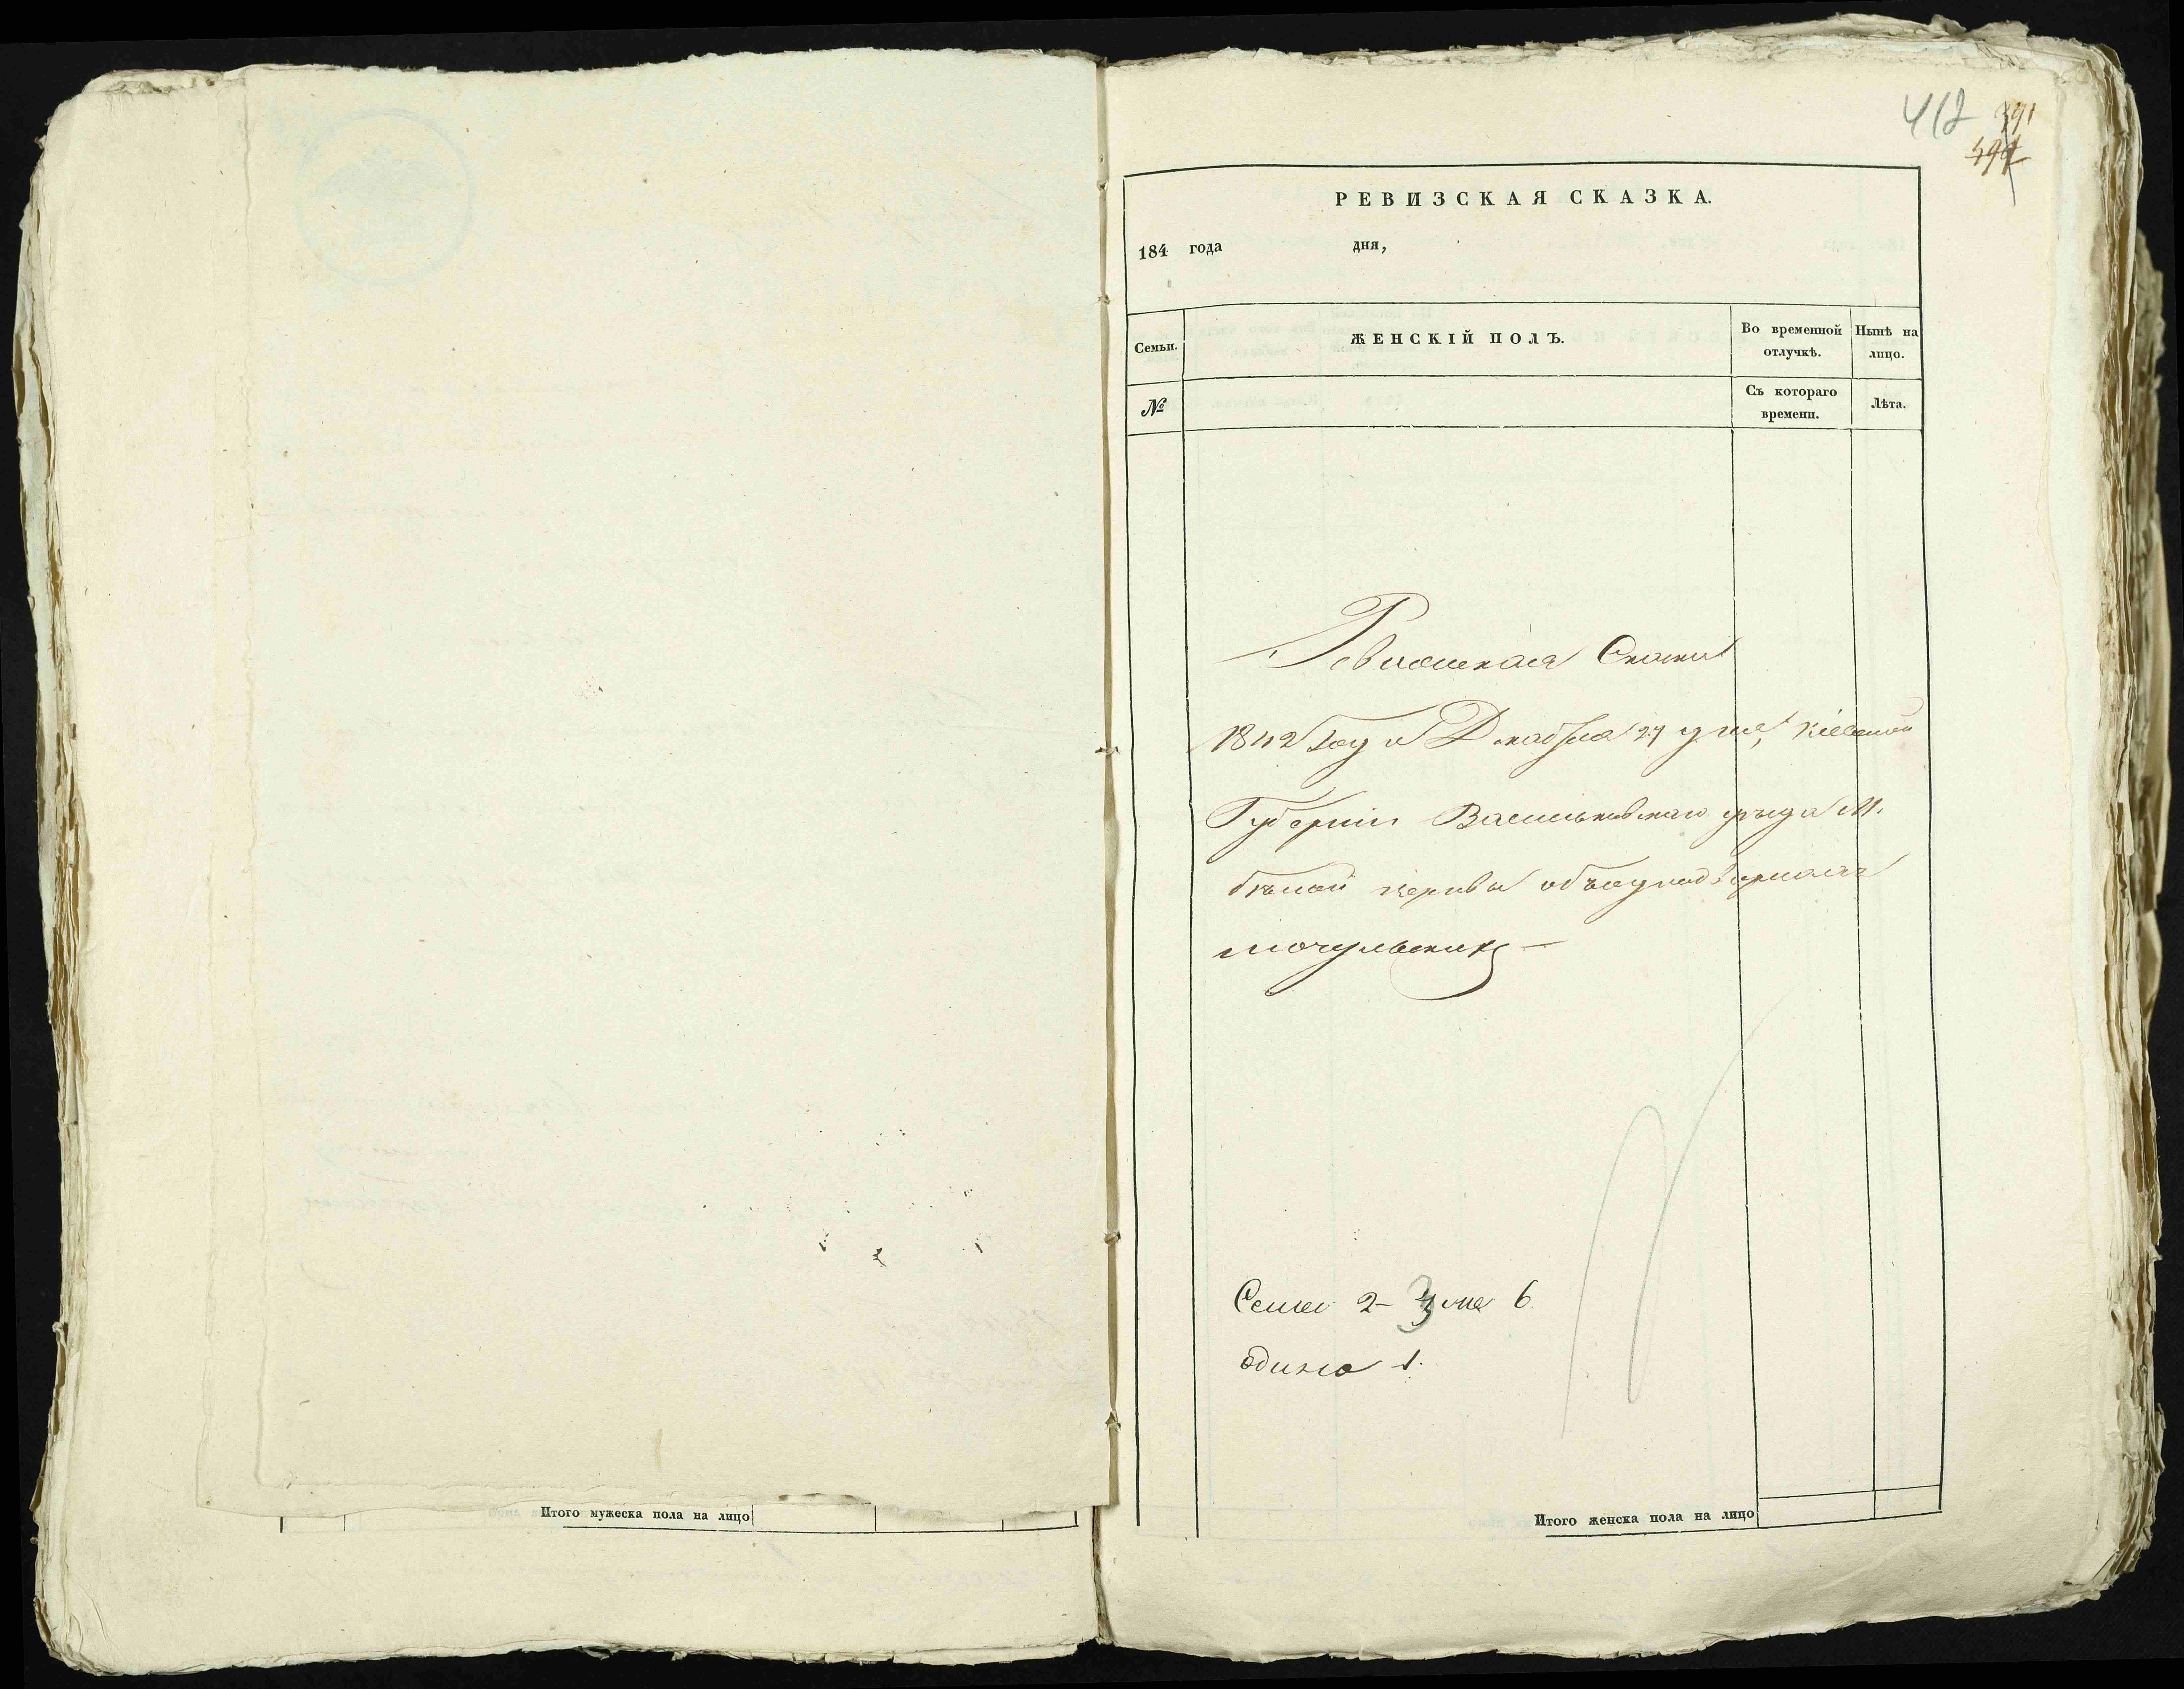 Итого мужеска пола на лицо
412 391
РЕВИЗСКАЯ СКАЗКА.
184 года дня,
Семьи. ЖЕНСКІЙ ПОЛЪ. Во временной отлучкѣ. Нынѣ на лицо.
№ Съ котораго времени. Лѣта.
Ревизская Сказка
1842 Года Декабря 29 дня, Кіевской
Губерніи Васильковскаго уѣзда М.
бѣлой церкви объ однодворцахъ
мочульских
Семей 2- 6
одино 1.
Итого женска пола на лицо